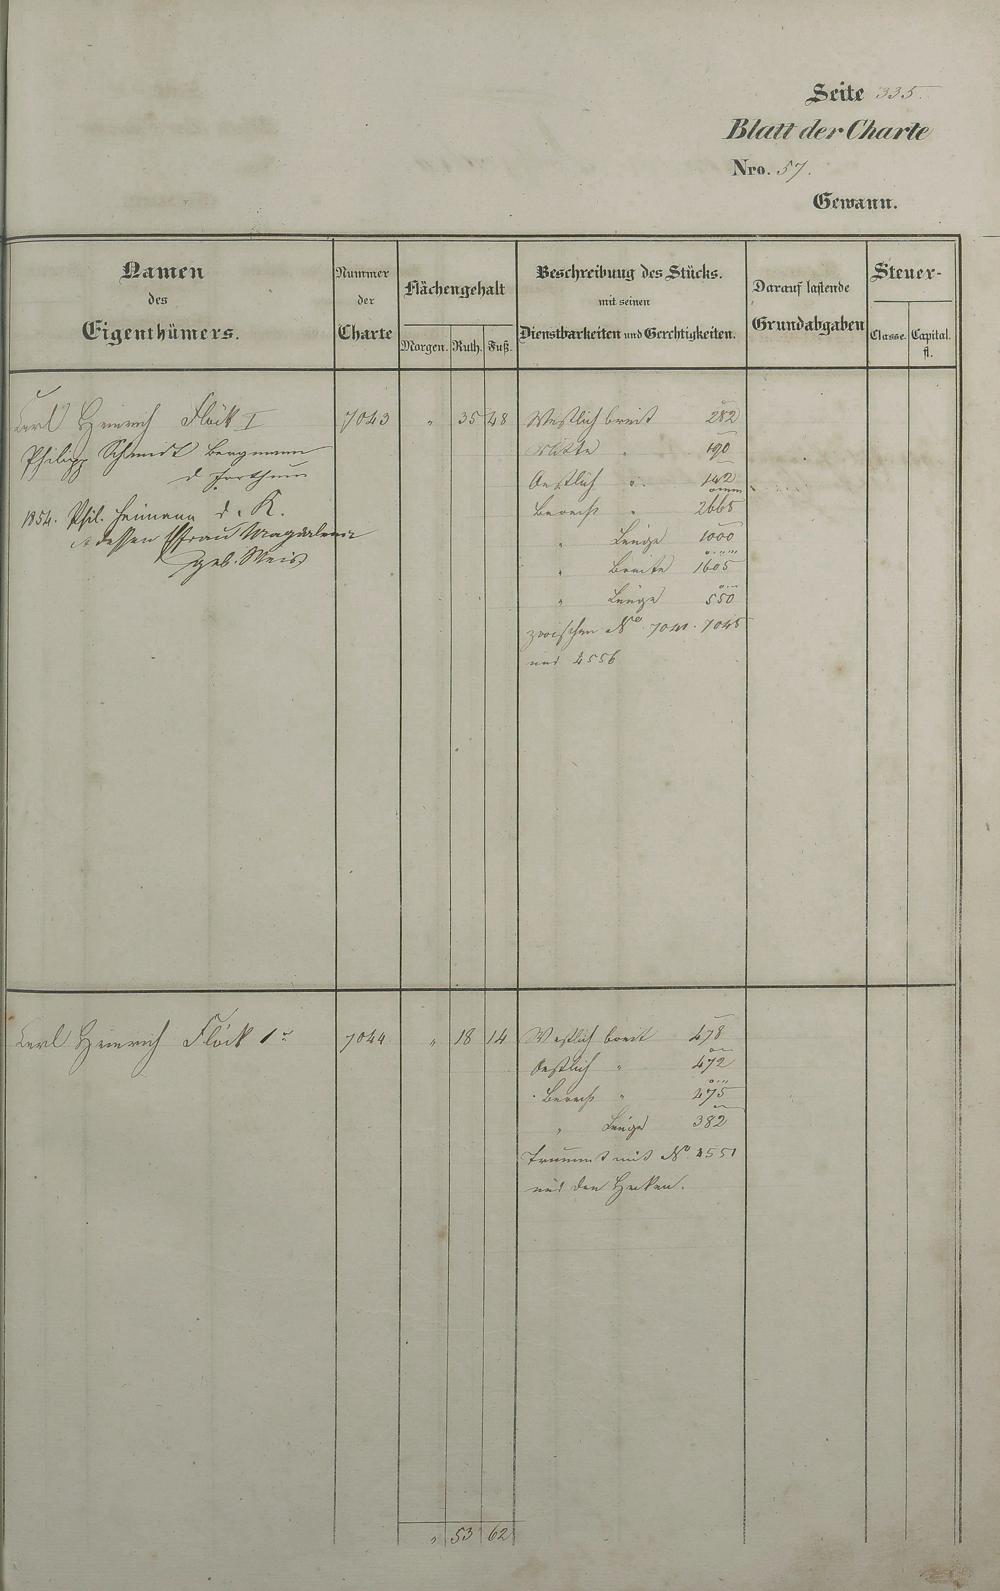 Seite 335.
Blatt der Charte
Nro. 57.
Gewann.
Namen
des
Eigenthümers.
Nummer
der
Charte
Flächengehalt
Morgen. Ruth. Fuß.
Beschreibung des Stücks.
mit seinen
Dienstbarkeiten und Gerchtigkeiten.
Darauf lastende
Grundabgaben
Steuer-
Classe. Capital.
fl.
Carl Heinrich Flöck I 7043 " 35 48 Westlich breit 282
Philipp Schmidt Bergmann
Mitte " 190
Oestlich " 142
1854. Phil. Heimann d. K.
Berech " 2665
dessen Ehfrau Magdalena
geb. Meis
" Länge 1000
" Breite 1605
" Länge 550
zwischen No. 7041. 7045
und 4556
Carl Heinrich Flöck 1r 7044 " 18 14 Westlich breit 478
Oestlich " 472
Berech " 475
" Länge 382
mit No. 4551
und den Hecken.
" 53 62